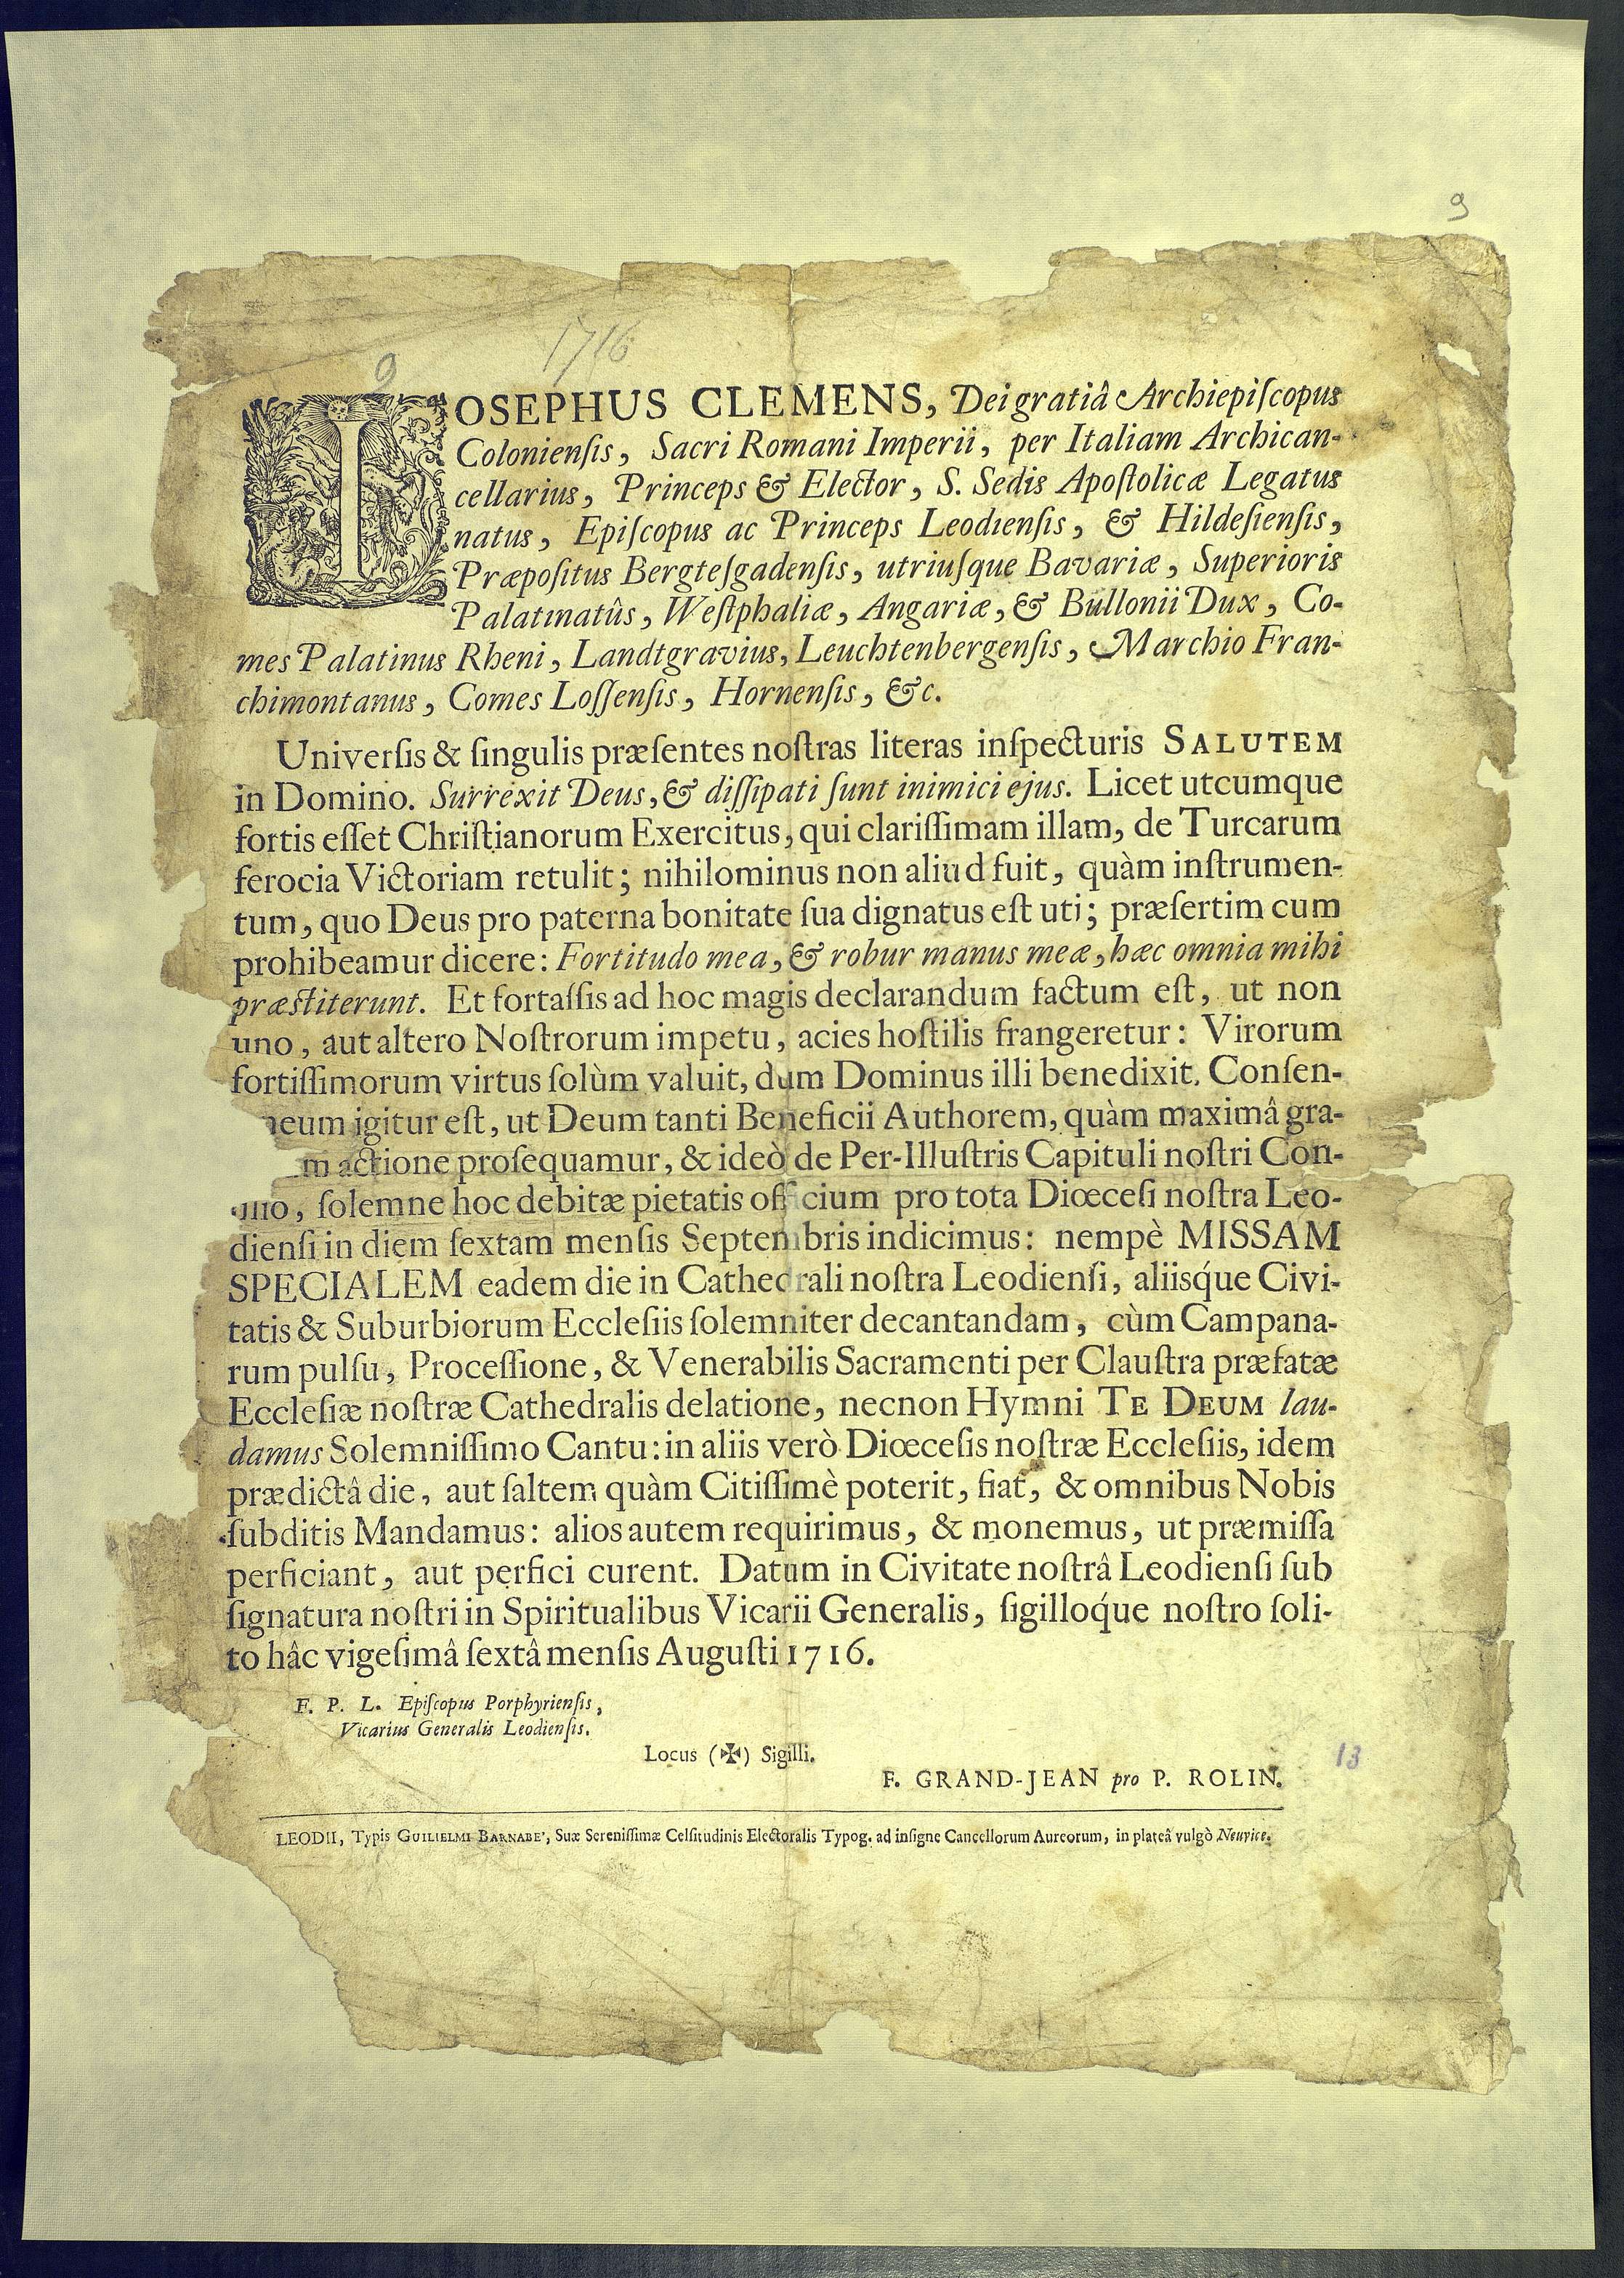 9
1716
9
IOSEPHUS CLEMENS, Dei gratiâ Archiepiſcopus
Colonienſis, Sacri Romani Imperii, per Italiam Archican-
cellarius, Princeps & Elector, S. Sedis Apoſtolicæ Legatus
natus, Epiſcopus ac Princeps Leodienſis, & Hildeſienſis,
Præpoſitus Bergteſgadenſis, utriuſque Bavariæ, Superioris
Palatinatûs, Weſtphaliæ, Angariæ, & Bullonii Dux, Co-
mes Palatinus Rheni, Landtgravius, Leuchtenbergenſis, Marchio Fran-
chimontanus, Comes Loſſenſis, Hornenſis, &c.
Univerſis & ſingulis præſentes noſtras literas inſpecturis SALUTEM
in Domino. Surrexit Deus, & diſſipati ſunt inimici ejus. Licet utcumque
fortis eſſet Chriſtianorum Exercitus, qui clariſſimam illam, de Turcarum
ferocia Victoriam retulit; nihilominus non aliud fuit, quàm inſtrumen-
tum, quo Deus pro paterna bonitate ſua dignatus eſt uti; præſertim cum
prohibeamur dicere: Fortitudo mea, & robur manus meæ, hæc omnia mihi
præſtiterunt. Et fortaſſis ad hoc magis declarandum factum eſt, ut non
uno, aut altero Noſtrorum impetu, acies hoſtilis frangeretur: Virorum
fortiſſimorum virtus ſolùm valuit, dum Dominus illi benedixit. Conſen-
neum igitur eſt, ut Deum tanti Beneficii Authorem, quàm maximâ gra-
m actione proſequamur, & ideò de Per-Illuſtris Capituli noſtri Con-
ſolemne hoc debitæ pietatis officium pro tota Diœceſi noſtra Leo-
dienſi in diem ſextam menſis Septembris indicimus: nempè MISSAM
SPECIALEM eadem die in Cathedrali noſtra Leodienſi, aliisq́ue Civi-
tatis & Suburbiorum Eccleſiis ſolemniter decantandam, cùm Campana-
rum pulſu, Proceſſione, & Venerabilis Sacramenti per Clauſtra præfatæ
Eccleſiæ noſtræ Cathedralis delatione, necnon Hymni TE DEUM lau-
damus Solemniſſimo Cantu: in aliis verò Diœceſis noſtræ Eccleſiis, idem
prædictâ die, aut ſaltem quàm Citiſſimè poterit, fiat, & omnibus Nobis
ſubditis Mandamus: alios autem requirimus, & monemus, ut præmiſſa
perficiant, aut perfici curent. Datum in Civitate noſtrâ Leodienſi ſub
ſignatura noſtri in Spiritualibus Vicarii Generalis, ſigilloq́ue noſtro ſoli-
to hâc vigeſimâ ſextâ menſis Auguſti 1716.
F. P. L. Epiſcopus Porphyrienſis,
Vicarius Generalis Leodienſis.
Locus (✠) Sigilli.
13
F. GRAND-JEAN pro P. ROLIN.
LEODII, Typis GUILIELMI BARNABE', Suæ Sereniſſimæ Celſitudinis Electoralis Typog. ad inſigne Cancellorum Aureorum, in plateâ vulgò Neuvice.